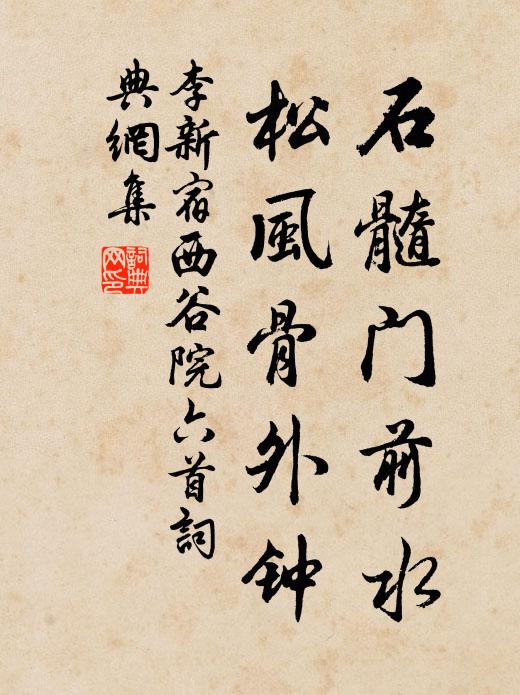 石髓门前水
松風骨外钟
李新宿西谷院六首詞
典網集
詞典
网印